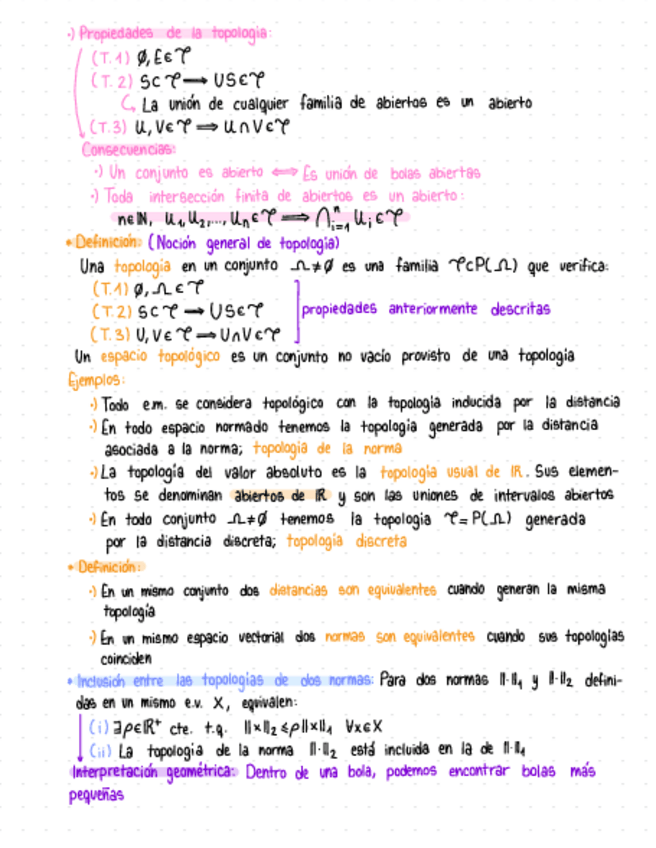 ·) Propiedades de la topología:
(T.1) ∅, E ∈ 𝒯
(T.2) S ⊂ 𝒯 ⟶ US ∈ 𝒯
↳ La unión de cualquier familia de abiertos es un abierto
(T.3) U, V ∈ 𝒯 ⟹ U∩V ∈ 𝒯
Consecuencias:
·) Un conjunto es abierto ⟺ Es unión de bolas abiertas
·) Toda intersección finita de abiertos es un abierto:
n∈ℕ, U₁, U₂, ..., Uₙ ∈ 𝒯 ⟹ ⋂ⁿᵢ₌₁ Uᵢ ∈ 𝒯
• Definición: (Noción general de topología)
Una topología en un conjunto Ω ≠ ∅ es una familia 𝒯 ⊂ P(Ω) que verifica:
(T.1) ∅, Ω ∈ 𝒯
(T.2) S ⊂ 𝒯 ⟶ US ∈ 𝒯 propiedades anteriormente descritas
(T.3) U, V ∈ 𝒯 ⟶ U∩V ∈ 𝒯
Un espacio topológico es un conjunto no vacío provisto de una topología
Ejemplos:
·) Todo e.m. se considera topológico con la topología inducida por la distancia
·) En todo espacio normado tenemos la topología generada por la distancia
asociada a la norma; topología de la norma
·) La topología del valor absoluto es la topología usual de ℝ. Sus elemen-
tos se denominan abiertos de ℝ y son las uniones de intervalos abiertos
·) En todo conjunto Ω ≠ ∅ tenemos la topología 𝒯 = P(Ω) generada
por la distancia discreta; topología discreta
• Definición:
·) En un mismo conjunto dos distancias son equivalentes cuando generan la misma
topología
·) En un mismo espacio vectorial dos normas son equivalentes cuando sus topologías
coinciden
• Inclusión entre las topologías de dos normas: Para dos normas ‖·‖₁ y ‖·‖₂ defini-
das en un mismo e.v. X, equivalen:
(i) ∃ρ∈ℝ⁺ cte. t.q. ‖x‖₂ ≤ ρ‖x‖₁ ∀x∈X
(ii) La topología de la norma ‖·‖₂ está incluida en la de ‖·‖₁
Interpretación geométrica: Dentro de una bola, podemos encontrar bolas más
pequeñas